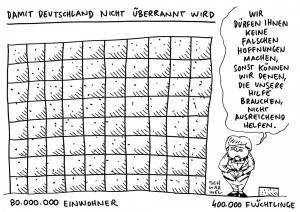 DAMIT DEUTSCHLAND NICHT ÜBERRANNT WIRD
WIR
DÜRFEN IHNEN
KEINE
FALSCHEN
HOFFNUNGEN
MACHEN,
SONST KÖNNEN
WIR DENEN,
DIE UNSERE
HILFE
BRAUCHEN,
NICHT
AUSREICHEND
HELFEN.
SCH
WAR
WEL
80.000.000 EINWOHNER
400.000 FLÜCHTLINGE